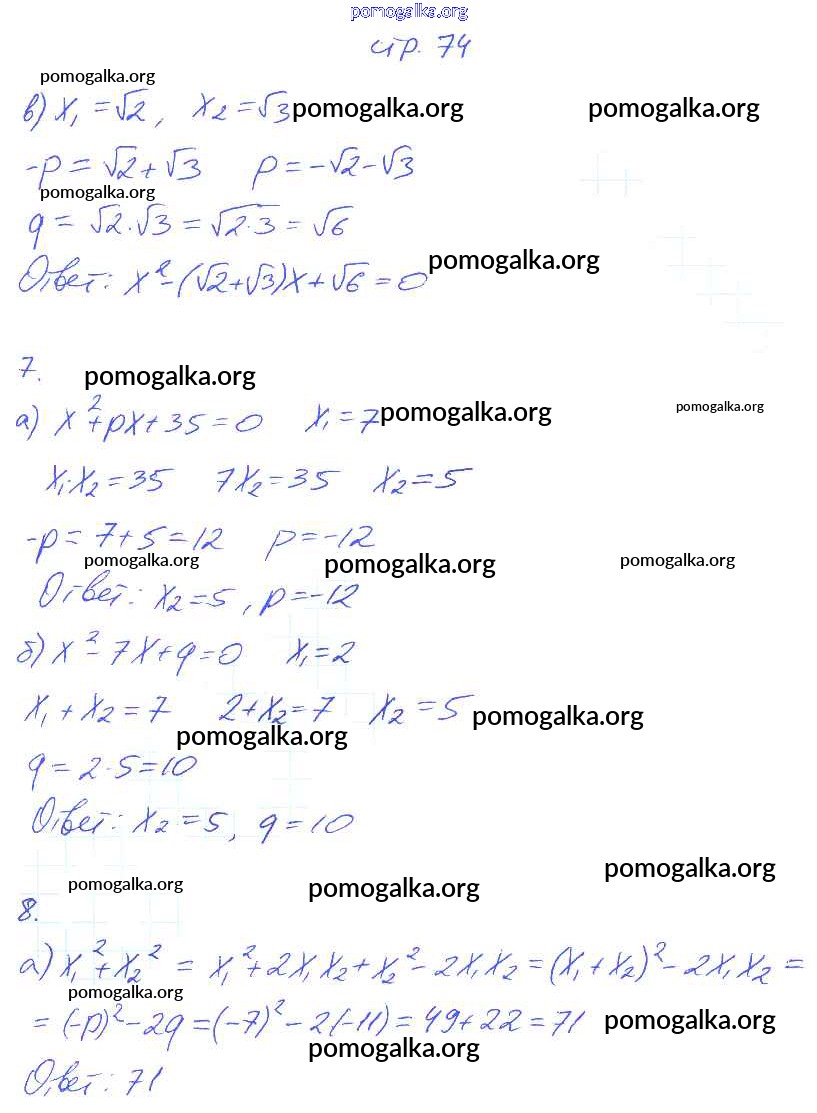 pomogalka.org
стр. 74
pomogalka.org
в) x₁ = √2, x₂ = √3 pomogalka.org pomogalka.org
-p = √2 + √3 p = -√2 - √3
pomogalka.org
q = √2 · √3 = √2·3 = √6
Ответ: x² - (√2 + √3)x + √6 = 0 pomogalka.org
7. pomogalka.org
а) x² + px + 35 = 0 x₁ = 7 pomogalka.org pomogalka.org
x₁·x₂ = 35 7x₂ = 35 x₂ = 5
-p = 7 + 5 = 12 p = -12
pomogalka.org pomogalka.org pomogalka.org
Ответ: x₂ = 5, p = -12
б) x² - 7x + q = 0 x₁ = 2
x₁ + x₂ = 7 2 + x₂ = 7 x₂ = 5 pomogalka.org
pomogalka.org
q = 2·5 = 10
Ответ: x₂ = 5, q = 10
pomogalka.org pomogalka.org pomogalka.org
8.
а) x₁² + x₂² = x₁² + 2x₁x₂ + x₂² - 2x₁x₂ = (x₁ + x₂)² - 2x₁x₂ =
pomogalka.org
= (-p)² - 2q = (-7)² - 2(-11) = 49 + 22 = 71 pomogalka.org
pomogalka.org
Ответ: 71